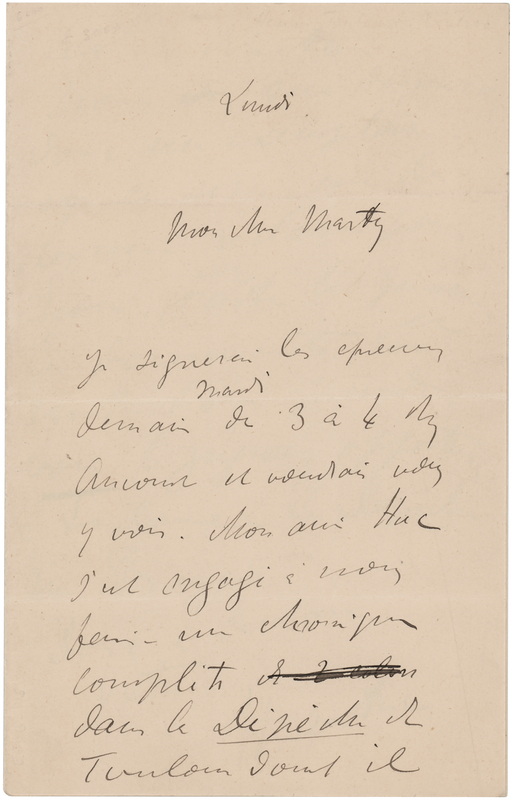 Lundi
Mon cher Marty
Je signerai les épreuves
mardi
demain de 3 à 4 chez
Ancourt et voudrais vous
y voir. Mon ami Huc
s'est engagé à nous
faire une chronique
complète de 2 colon
dans la Dépêche de
Toulouse dont il